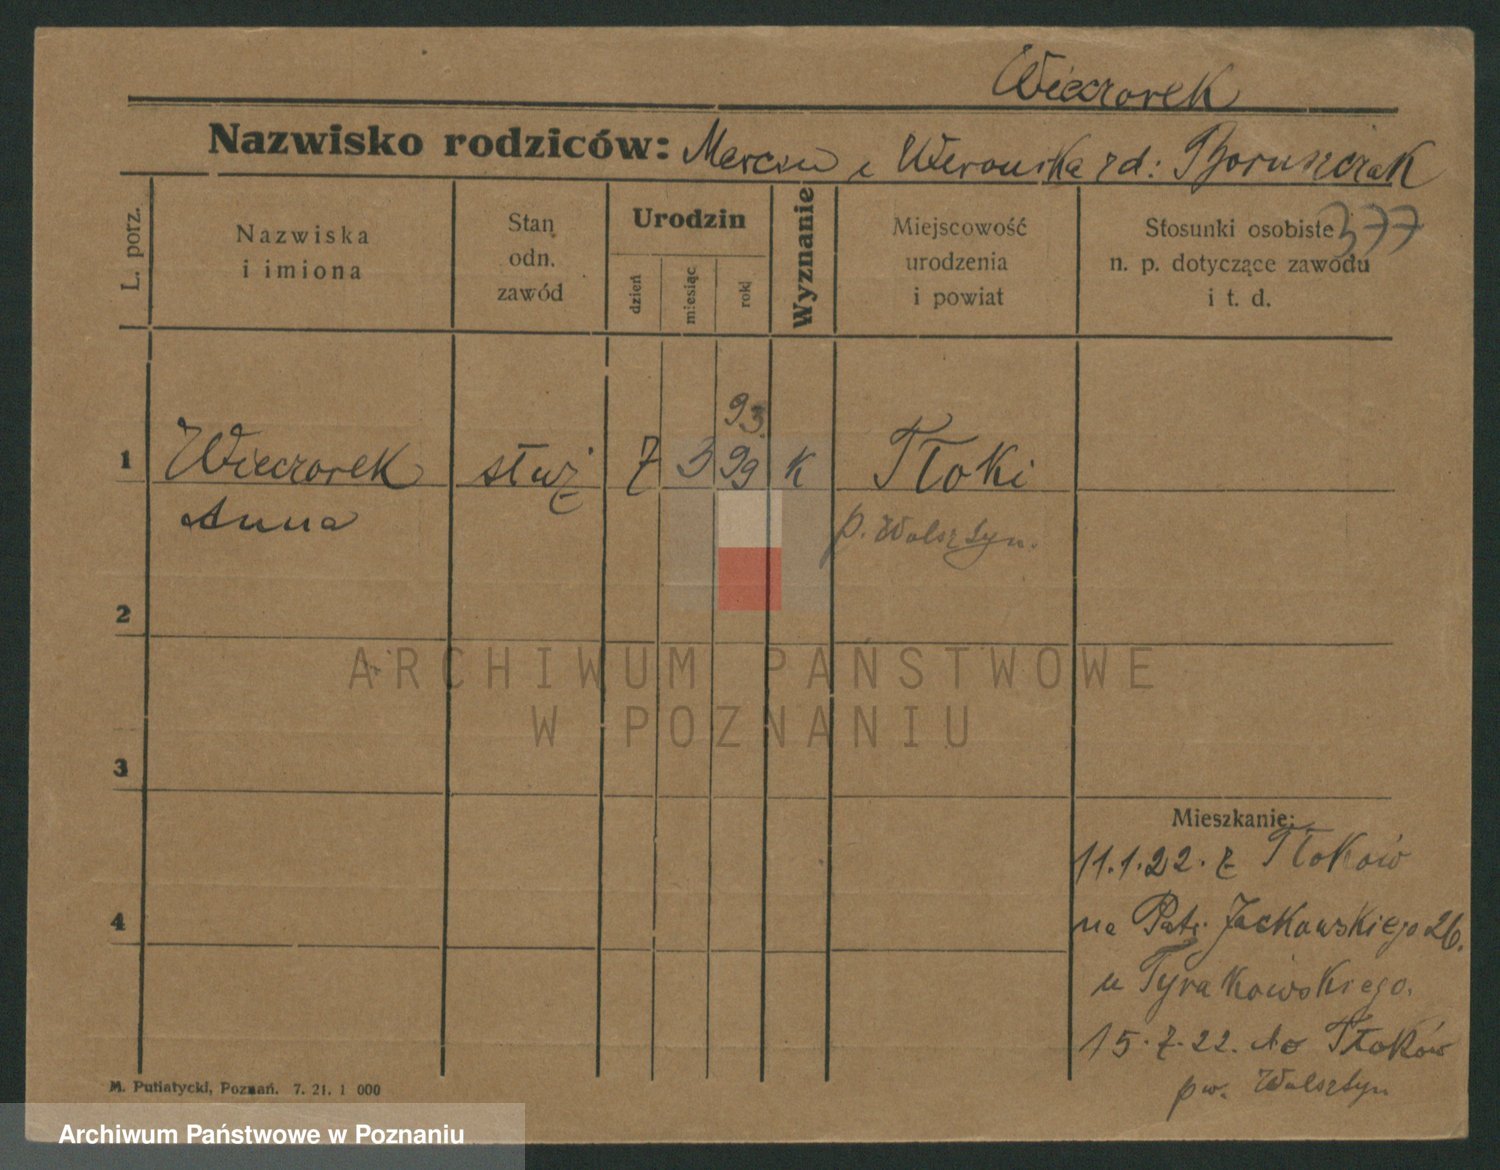 Wieczorek
Nazwisko rodziców: Marcin i Weronika zd: Boruszczak
377
L. porz.
Nazwiska
i imiona
Stan
odn.
zawód
Urodzin
dzień
miesiąc
rok
Wyznanie
Miejscowość
urodzenia
i powiat
Stosunki osobiste
n. p. dotyczące zawodu
i t. d.
93.
1 Wieczorek służ 7 3 99 k Tłoki
Anna p. Wolsztyn.
2
ARCHIWUM PAŃSTWOWE
W POZNANIU
3
Mieszkanie:
11.1.22. z Tłoków
na Patr. Jackowskiego 26.
4
u Tyrakowskiego.
15.7.22. do Tłoków
pw. Wolsztyn
M. Putiatycki, Poznań. 7. 21. 1 000
Archiwum Państwowe w Poznaniu